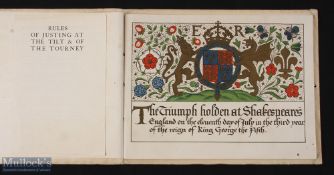 RULES
OF JUSTING AT
THE TILT & OF
THE TOURNEY
E R
The Triumph holden at Shakespeares
England on the eleventh day of July in the third year
of the reign of King George the Fifth.
Mullock's